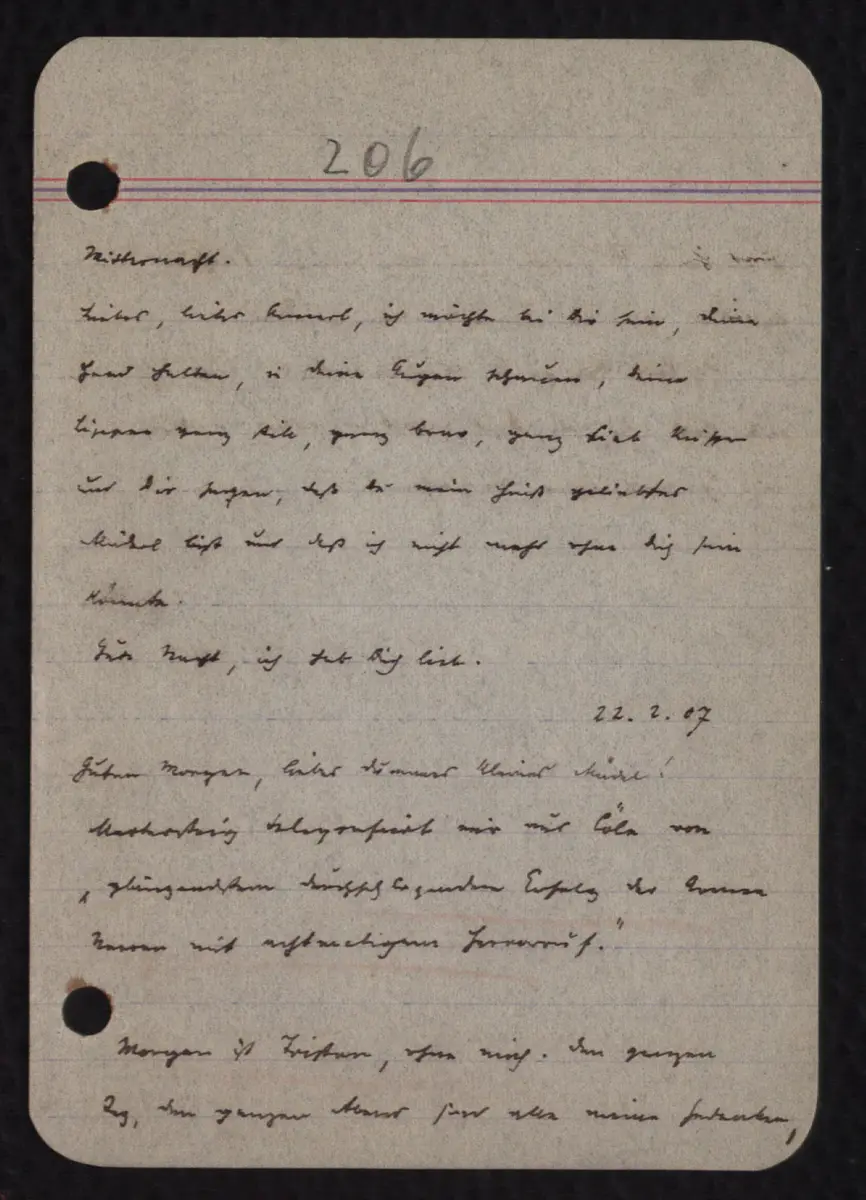 206
Mitternacht.
Liebes, liebes Annerl, ich möchte bei Dir sein, deine
Hand halten, in deine Augen schauen, deine
Lippen ganz still, ganz brav, ganz lieb küssen
und Dir sagen, daß du mein heiß geliebtes
Mädel bist und daß ich nicht mehr ohne dich sein
könnte.
Gute Nacht, ich hab Dich lieb.
22. 2. 07
Guten Morgen, liebes dummes kleines Mädel!
Martersteig telegrafiert mir aus Cöln von
„glänzendstem durchschlagenden Erfolg des Armen
Narren mit achtmaligem Hervorruf."
Morgen ist Tristan, ohne mich. Den ganzen
Tag, den ganzen Abend sind alle meine Gedanken,